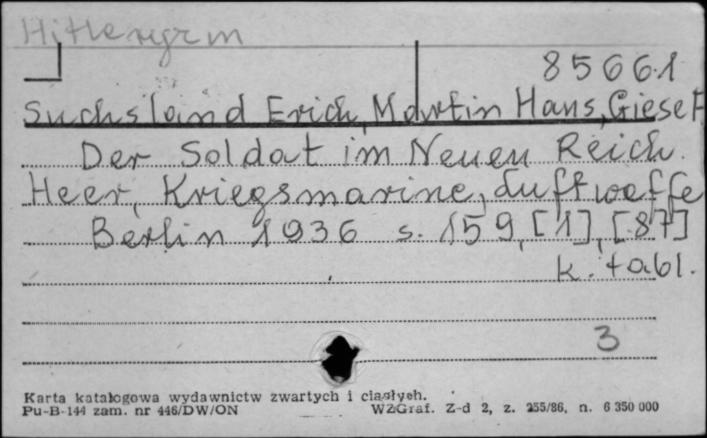 Hitleryzm
85661
Suchsland Erich, Martin Hans, Giese F
Der Soldat im Neuen Reich.
Heer, Kriegsmarine, Luftwaffe
Berlin 1936 s. 159, [1], [87]
k. tabl.
3
Karta katalogowa wydawnictw zwartych i ciągłych.
Pu-B-144 zam. nr 446/DW/ON WZGraf. Z-d 2, z. 255/86, n. 6 350 000